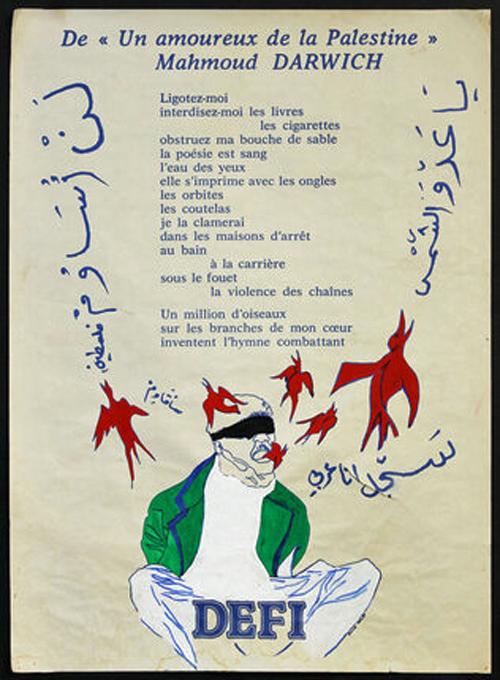 De « Un amoureux de la Palestine »
Mahmoud DARWICH
Ligotez-moi
interdisez-moi les livres
les cigarettes
obstruez ma bouche de sable
la poésie est sang
l'eau des yeux
elle s'imprime avec les ongles
les orbites
les coutelas
je la clamerai
dans les maisons d'arrêt
au bain
à la carrière
sous le fouet
la violence des chaînes
Un million d'oiseaux
sur les branches de mon cœur
inventent l'hymne combattant
لَنْ أُسَاوِمْ فلسطين
يَا عَدُوَّ الشَّمْسِ
سنقاوم
سَجِّل انا عربي
DEFI